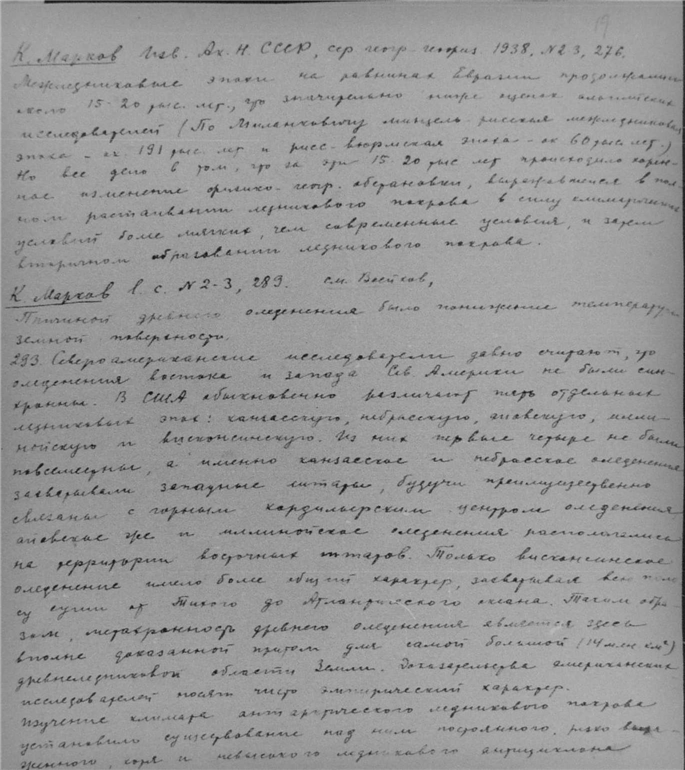 19
К. Марков Изв. Ак. Н. СССР, сер геогр. геофиз. 1938. N2 3, 276.
Межледниковые эпохи на равнинах Евразии продолжались
около 15-20 тыс. лет, что значительно ниже оценок альпийских
исследователей (По Миланковичу миндель-рисская межледниковая
эпоха - ок. 191 тыс. лет и рисс-вюрмская эпоха - ок 60 тыс. лет.)
Но все дело в том, что за эти 15-20 тыс лет происходило корен-
ное изменение физико-геогр. обстановки, выражавшееся в пол-
ном растаивании ледникового покрова в силу климатических
условий более мягких, чем современные условия, и затем
вторичном образовании ледникового покрова.
К. Марков l. c. N2-3, 289. см. Воейков,
Причиной древнего оледенения было понижение температуры
земной поверхности.
293. Североамериканские исследователи давно считают, что
оледенения востока и запада Сев. Америки не были син-
хронны. В США обыкновенно различают пять отдельных
ледниковых эпох: канзасскую, небрасскую, айовскую, илли-
нойскую и висконсинскую. Из них первые четыре не были
повсеместны, а именно канзасское и небрасское оледенения
захватывали западные штаты, будучи преимущественно
связаны с горным кордильерским центром оледенения
айовское же и иллинойское оледенения располагались
на территории восточных штатов. Только висконсинское
оледенение имело более общий характер, захватывая всю
су суши от Тихого до Атлантического океана. Таким обра-
зом, метахронность древнего оледенения является здесь
вполне доказанной притом для самой большой (14 млн. км²)
древнеледниковой области Земли. Доказательства американских
исследователей носят чисто эмпирический характер.
Изучение климата антарктического ледникового покрова
установило существование над ним постоянного, резко выра-
женного, хотя и невысокого ледникового антициклона